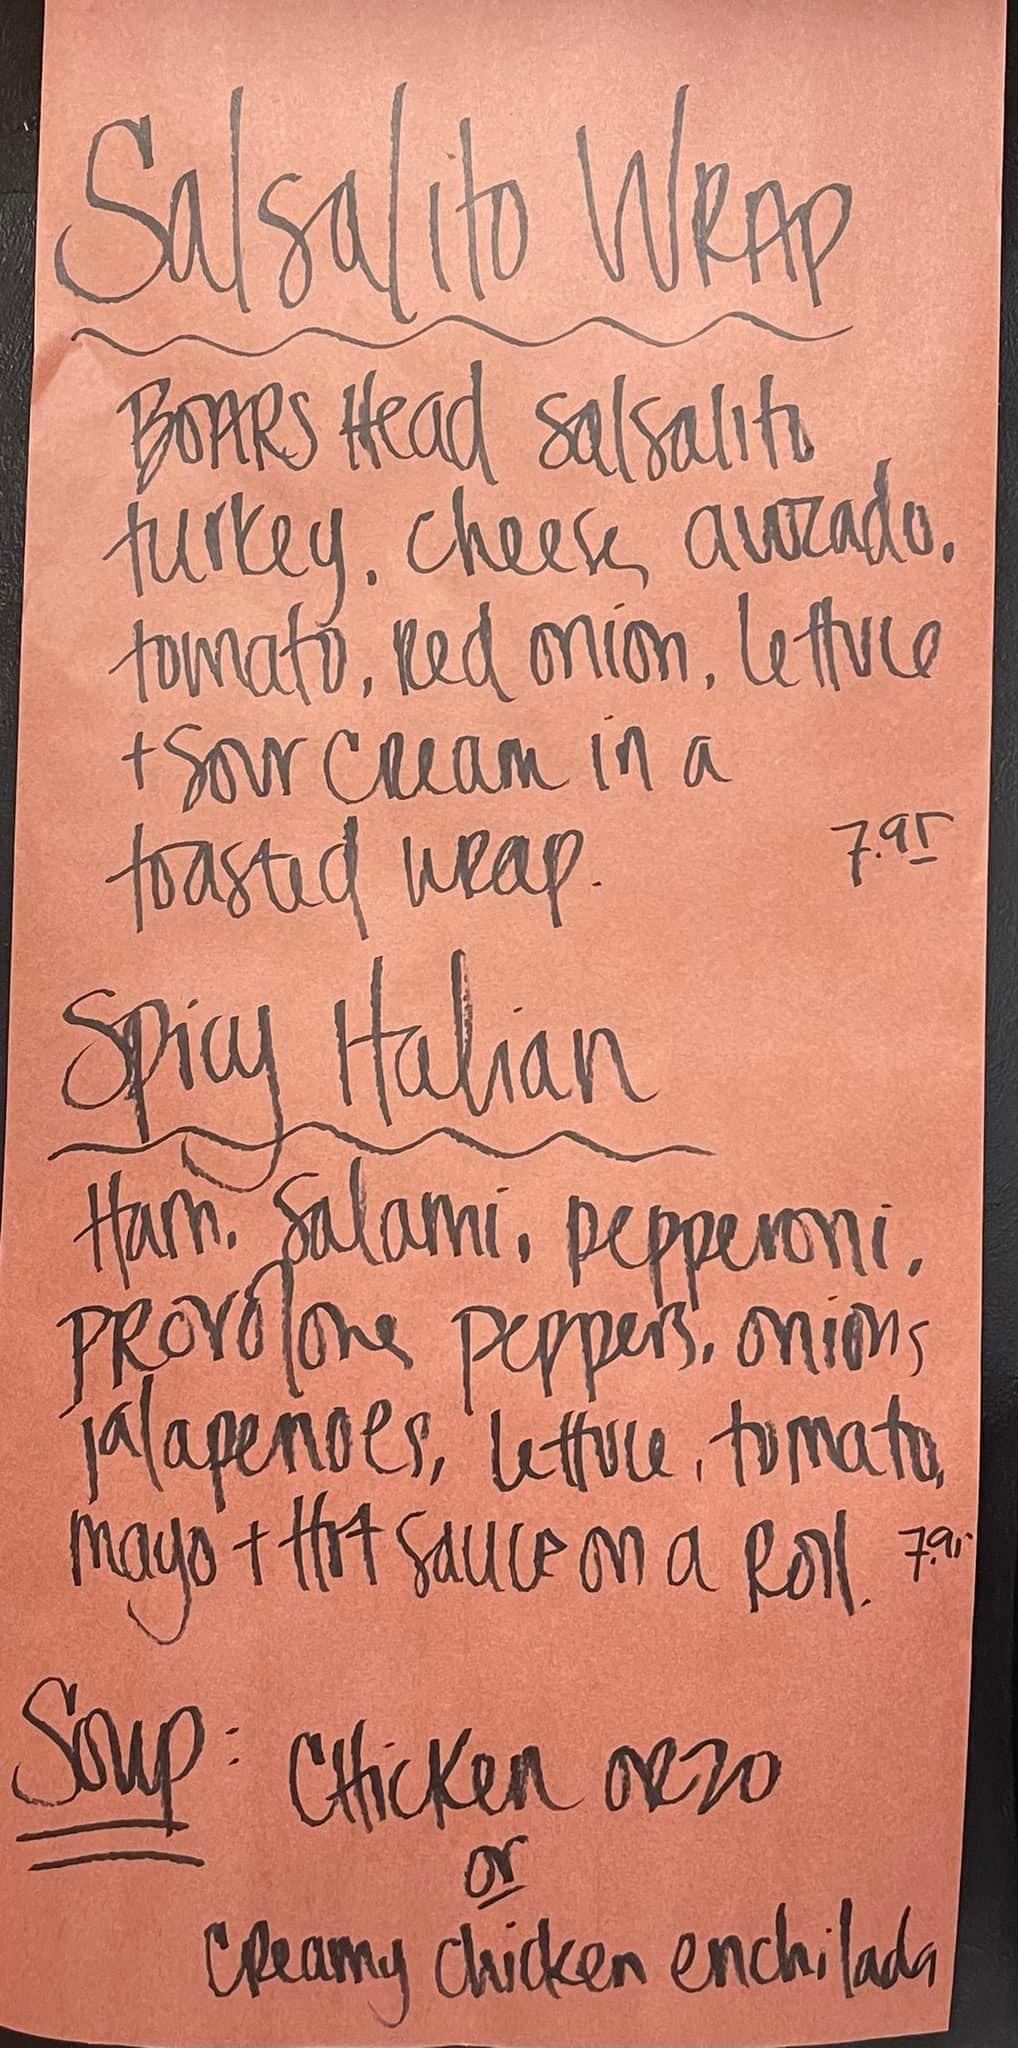 Salsalito WRAP
BOARS Head Salsalito
turkey, cheese, avocado,
tomato, Red onion, lettuce
+ Sour Cream in a
toasted wrap. 7.95
Spicy Italian
Ham, Salami, pepperoni,
PROVOlone peppers, onions
jalapenoes, lettuce, tomato,
mayo + Hot sauce on a Roll. 7.95
Soup: CHicKen ORZO
or
CReamy chicken enchilada